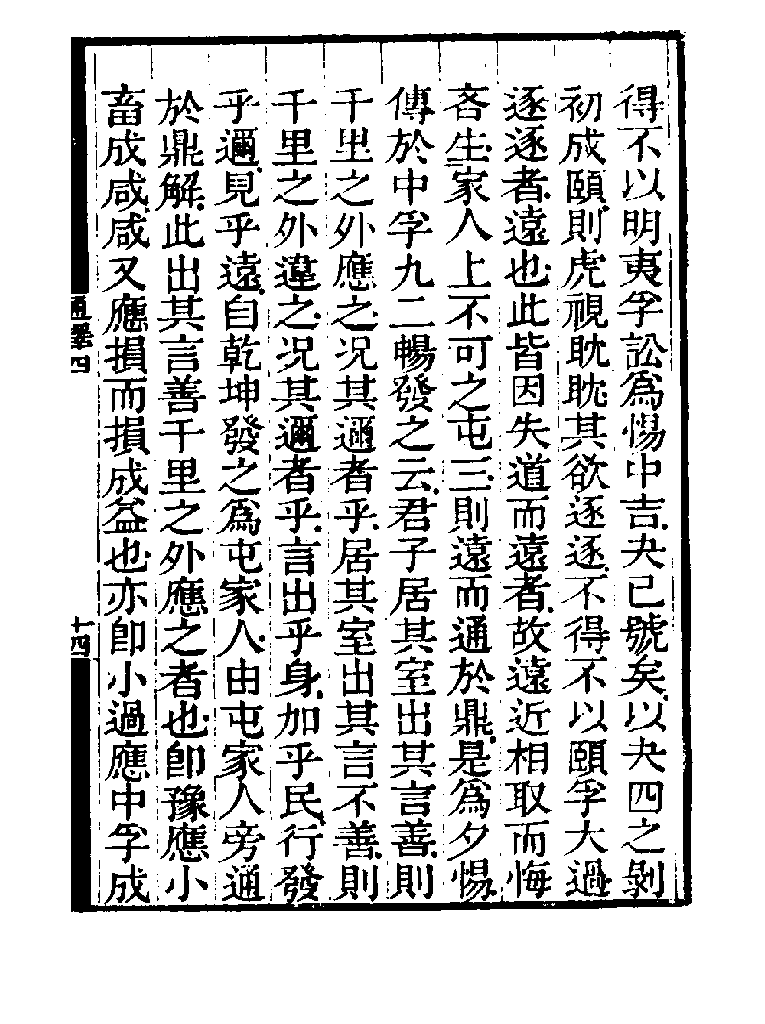 得不以明夷孚訟爲惕中吉夬已號矣以夬四之剝
初成頤則虎視耽耽其欲逐逐不得不以頤孚大過
逐逐者遠也此皆因失道而遠者故遠近相取而悔
吝生家人上不可之屯三則遠而通於鼎是爲夕惕
傳於中孚九二暢發之云君子居其室出其言善則
千里之外應之况其邇者乎居其室出其言不善則
千里之外違之况其邇者乎言出乎身加乎民行發
乎邇見乎遠自乾坤發之爲屯家人由屯家人旁通
於鼎解此出其言善千里之外應之者也卽豫應小
畜成咸咸又應損而損成益也亦卽小過應中孚成
通釋四
十四